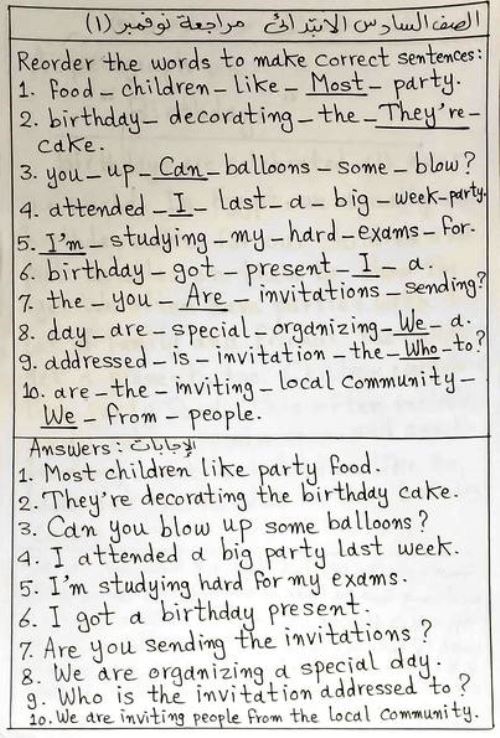 الصف السادس الابتدائي مراجعة نوفمبر (١)
Reorder the words to make correct sentences:
1. food – children – like – Most – party.
2. birthday – decorating – the – They're –
cake.
3. you – up – Can – balloons – some – blow?
4. attended – I – last – a – big – week – party.
5. I'm – studying – my – hard – exams – for.
6. birthday – got – present – I – a.
7. the – you – Are – invitations – sending?
8. day – are – special – organizing – We – a.
9. addressed – is – invitation – the – Who – to?
10. are – the – inviting – local community –
We – from – people.
Answers : الإجابات
1. Most children like party food.
2. They're decorating the birthday cake.
3. Can you blow up some balloons?
4. I attended a big party last week.
5. I'm studying hard for my exams.
6. I got a birthday present.
7. Are you sending the invitations?
8. We are organizing a special day.
9. Who is the invitation addressed to?
10. We are inviting people from the local community.